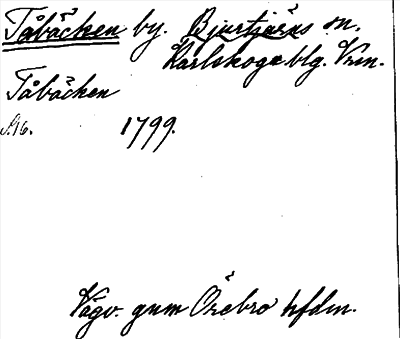 Tåbäcken by. Bjurtjärns sn.
Karlskoga blg. Vrm.
Tåbäcken
S. 16. 1799.
Vägv. gnm Örebro hfdm.